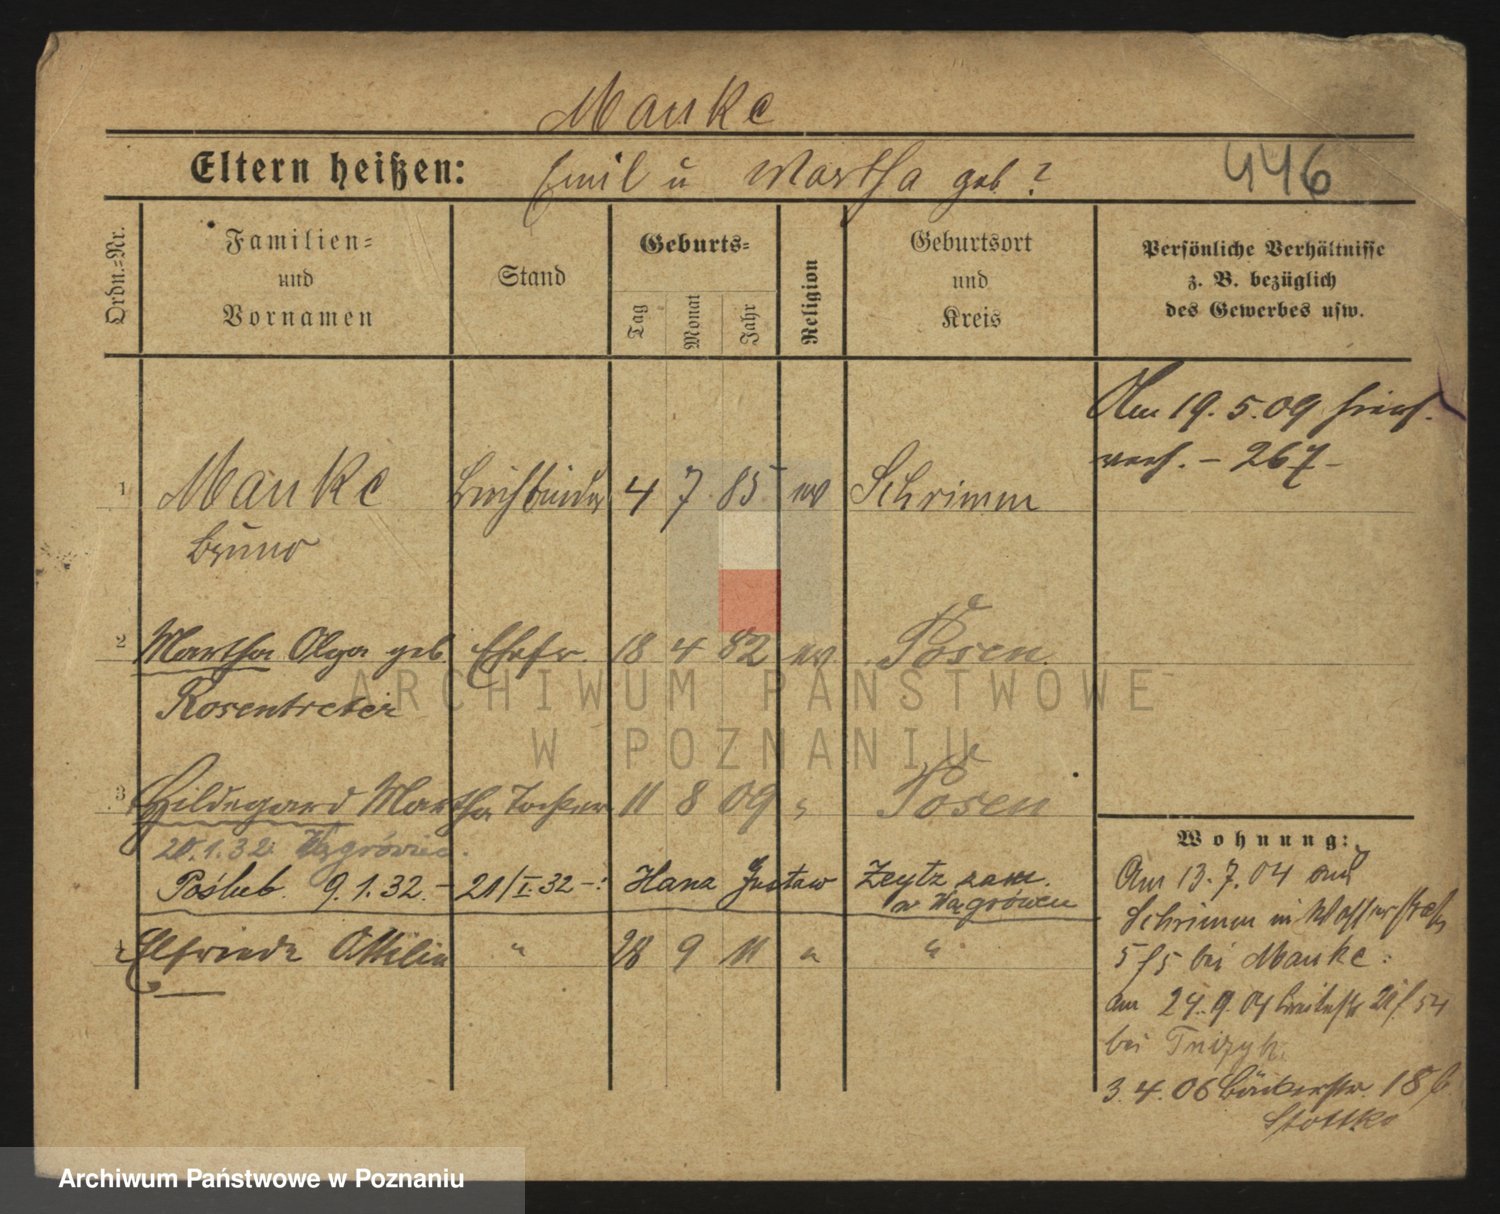 Manke
Eltern heißen: Emil u Martha geb ?
446
Ordn.-Nr.
Familien- und Vornamen
Stand
Geburts-
Tag
Monat
Jahr
Religion
Geburtsort und Kreis
Persönliche Verhältnisse
z. B. bezüglich
des Gewerbes usw.
Am 19. 5. 09
- 267 -
1 Manke Buchbinder 4 7 85 ev Schrimm
Bruno
2 Martha Olga geb. Ehefr. 18 4 82 ev Posen
Rosentreter
3 Hildegard Martha Tochter 11 8 09 " Posen
20.1.32. Wągrówiec.
Poślub. 9.1.32. - 21/I.32 - : Hans Gustaw Zeytz zam.
w Wągrówcu
4 Elfriede Ottilie " 28 9 11 " "
Wohnung:
Am 13. 7. 04 aus
Schrimm in Wasserstraße
5 bei Manke.
am 24. 9. 04 54
bei
3. 4. 06 Bäckerstr. 18
ARCHIWUM PAŃSTWOWE
W POZNANIU
Archiwum Państwowe w Poznaniu